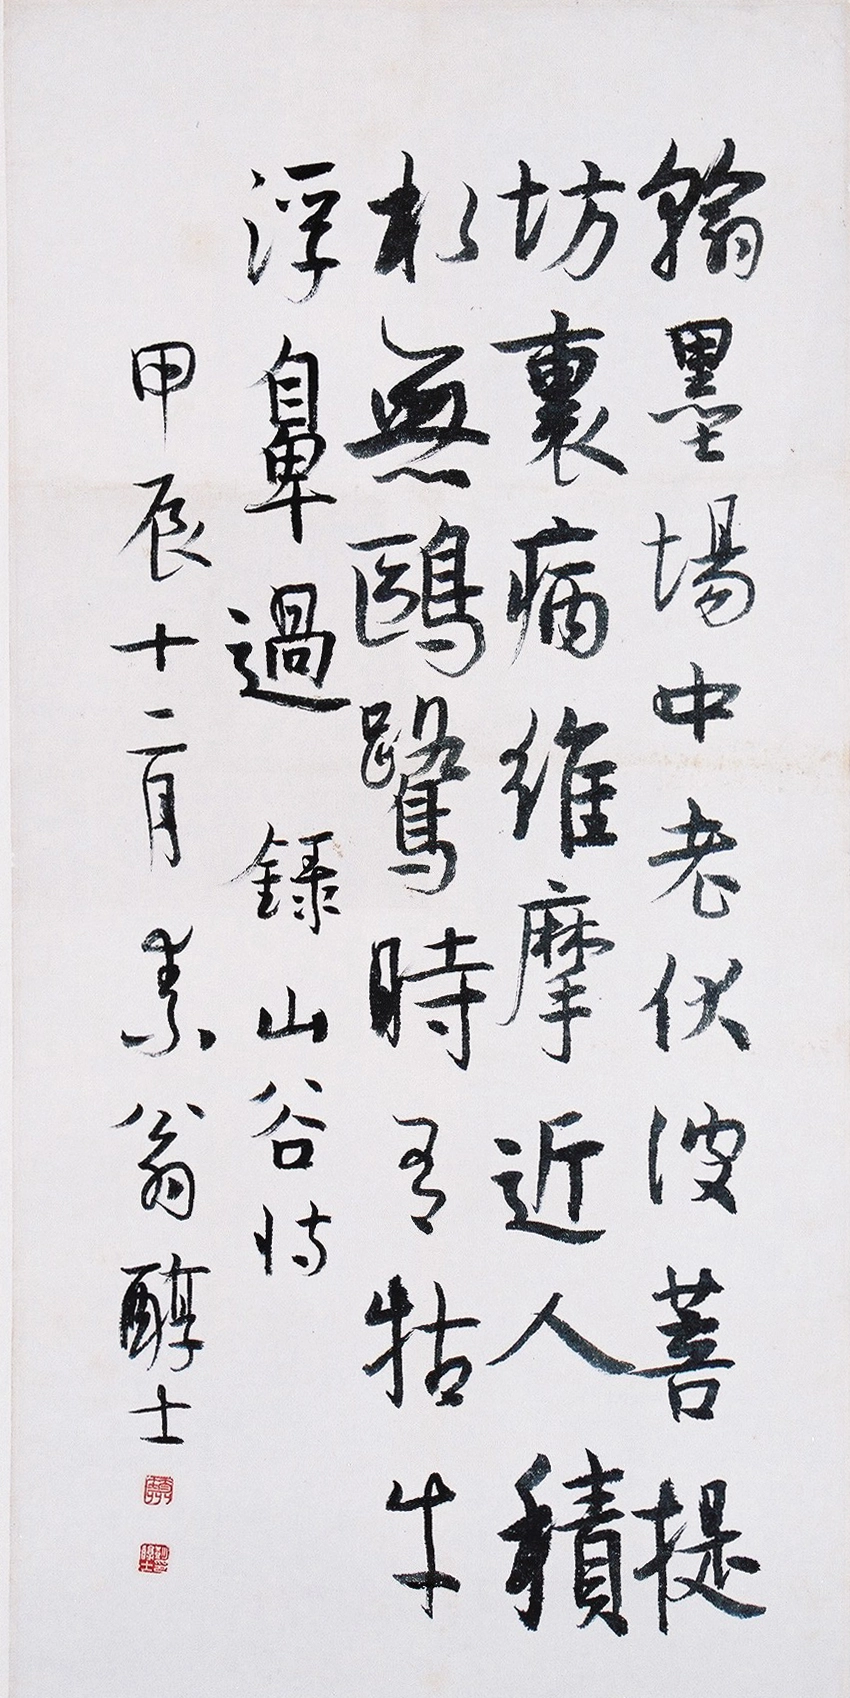 翰墨場中老伏波菩提
坊裏病維摩近人積
水無鷗鷺時有牯牛
浮鼻過 錄山谷詩
甲辰十二月 素翁醇士